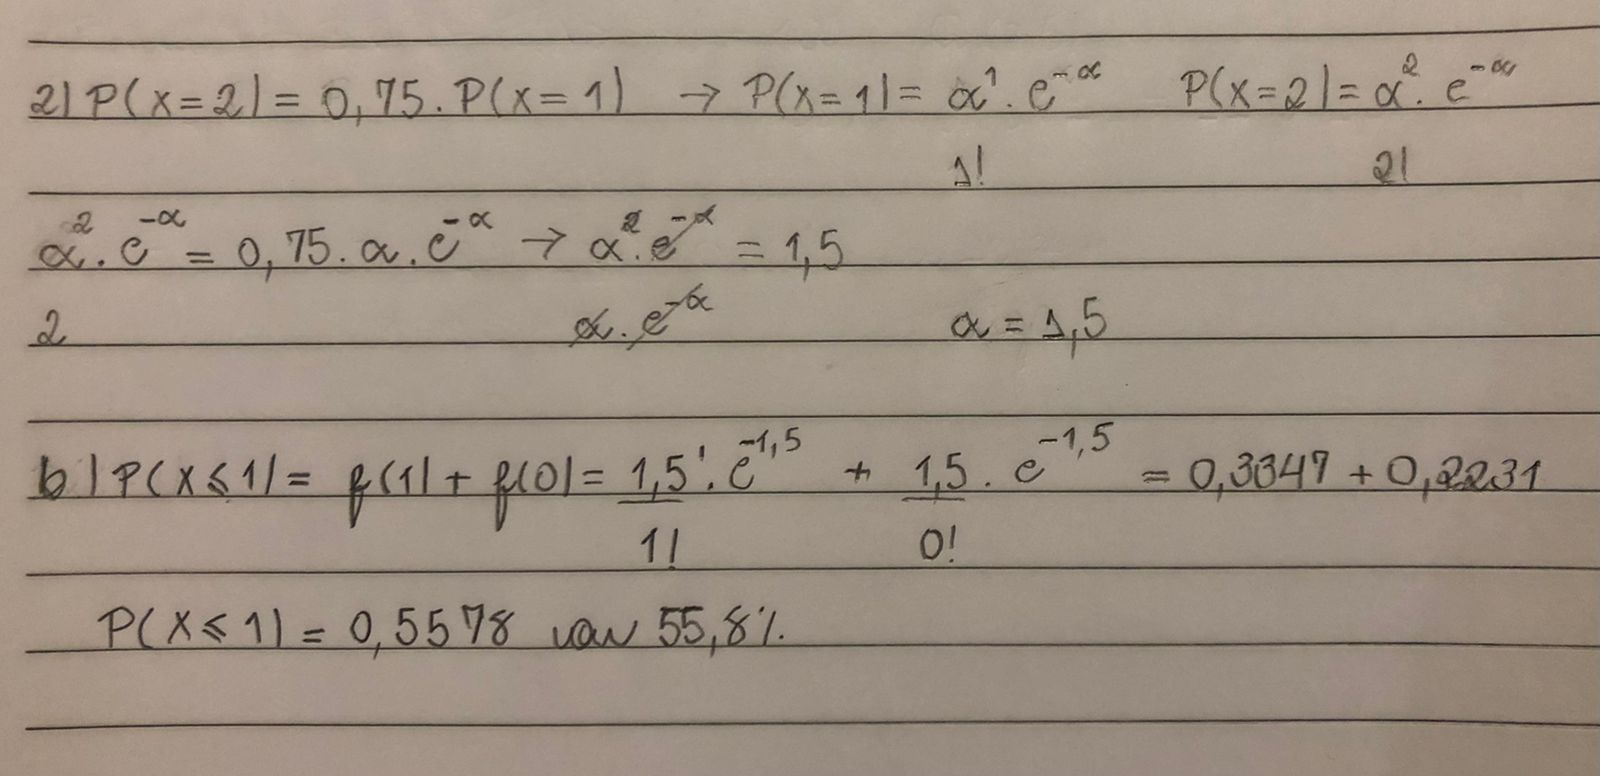 2) P(x=2) = 0,75. P(x=1) → P(x=1) = α¹. e^-α P(x=2) = α². e^-α
1! 2!
α². e^-α = 0,75. α. e^-α → α². e^-α = 1,5
2 α. e^-α α = 1,5
b) P(X≤1) = f(1) + f(0) = 1,5¹. e^-1,5 + 1,5. e^-1,5 = 0,3347 + 0,2231
1! 0!
P(X≤1) = 0,5578 55,8%.